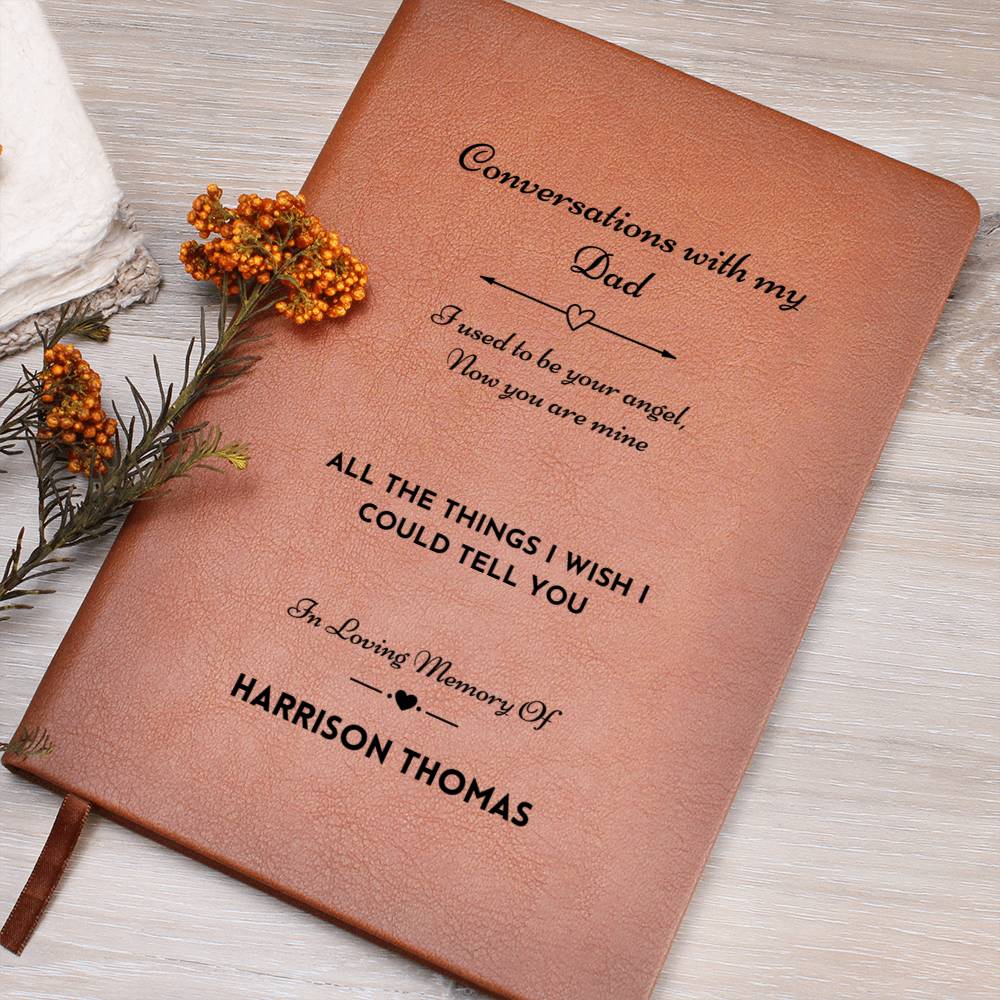 Conversations with my
Dad
I used to be your angel,
Now you are mine
ALL THE THINGS I WISH I
COULD TELL YOU
In Loving Memory Of
HARRISON THOMAS